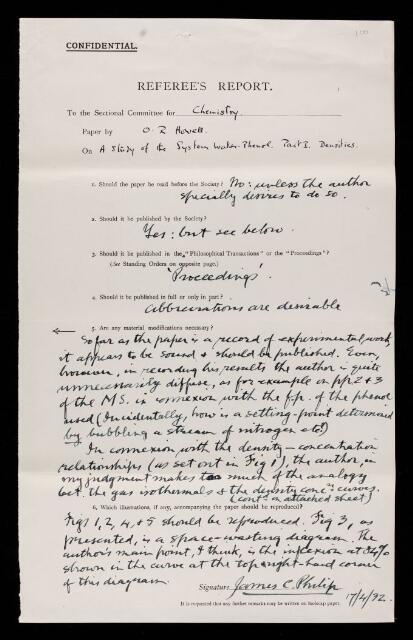 CONFIDENTIAL.
REFEREE'S REPORT.
To the Sectional Committee for Chemistry
Paper by O. R. Howell.
On A Study of the System Water-Phenol. Part I. Densities.
1. Should the paper be read before the Society? No: unless the author
specially desires to do so.
2. Should it be published by the Society?
Yes: but see below.
3. Should it be published in the "Philosophical Transactions" or the "Proceedings"?
(See Standing Orders on opposite page.)
'Proceedings'.
4. Should it be published in full or only in part?
abbreviations are desirable
5. Are any material modifications necessary?
So far as the paper is a record of experimental work
it appears to be sound & should be published. Even,
however, in recording his results the author is quite
unnecessarily diffuse, as for example on pp 2 & 3
of the M.S. in connexion with the f.p. of the phenol
used (Incidentally, how is a setting-point determined
by bubbling a stream of nitrogen etc?)
In connexion with the density-concentration
relationships (as set out in Fig 1), the author, in
my judgment makes too much of the analogy
bet. the gas isothermals & the density conc. curves.
(contd on attached sheet)
6. Which illustrations, if any, accompanying the paper should be reproduced?
Figs 1, 2, 4, & 5 should be reproduced. Fig 3, as
presented, is a space-wasting diagram. The
author's main point, I think, is the inflexion at 34%
shown in the curve at the top right-hand corner
of this diagram.
Signature James C. Philip
17/4/32.
It is requested that any further remarks may be written on foolscap paper.